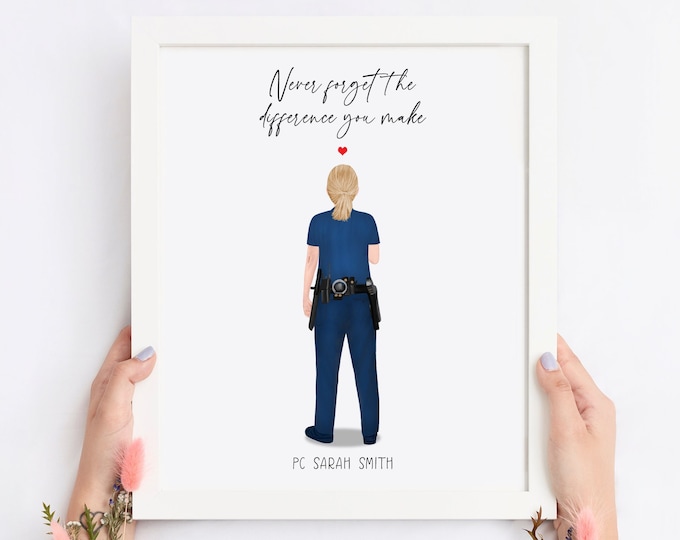 Never forget the
difference you make
PC SARAH SMITH